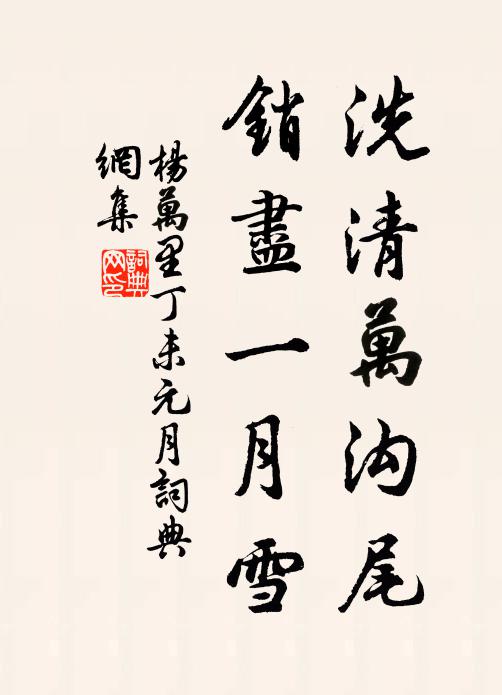 洗清萬沟尾
銷盡一月雪
楊萬里丁未元月詞典
網集
詞典
网印